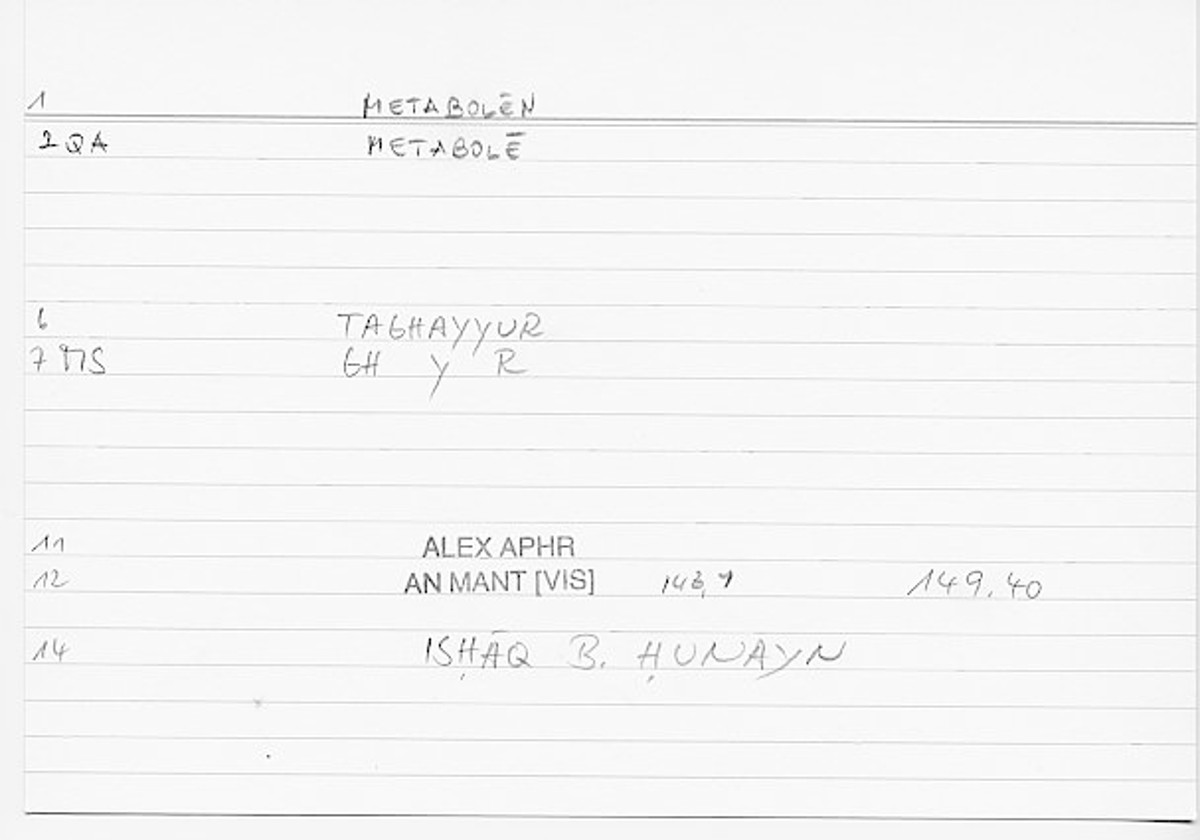 1 METABOLĒN
2 QA METABOLĒ
6 TAGHAYYUR
7 MS GH Y R
11 ALEX APHR
12 AN MANT [VIS] 149.40
14 ISḤĀQ B. ḤUNAYN